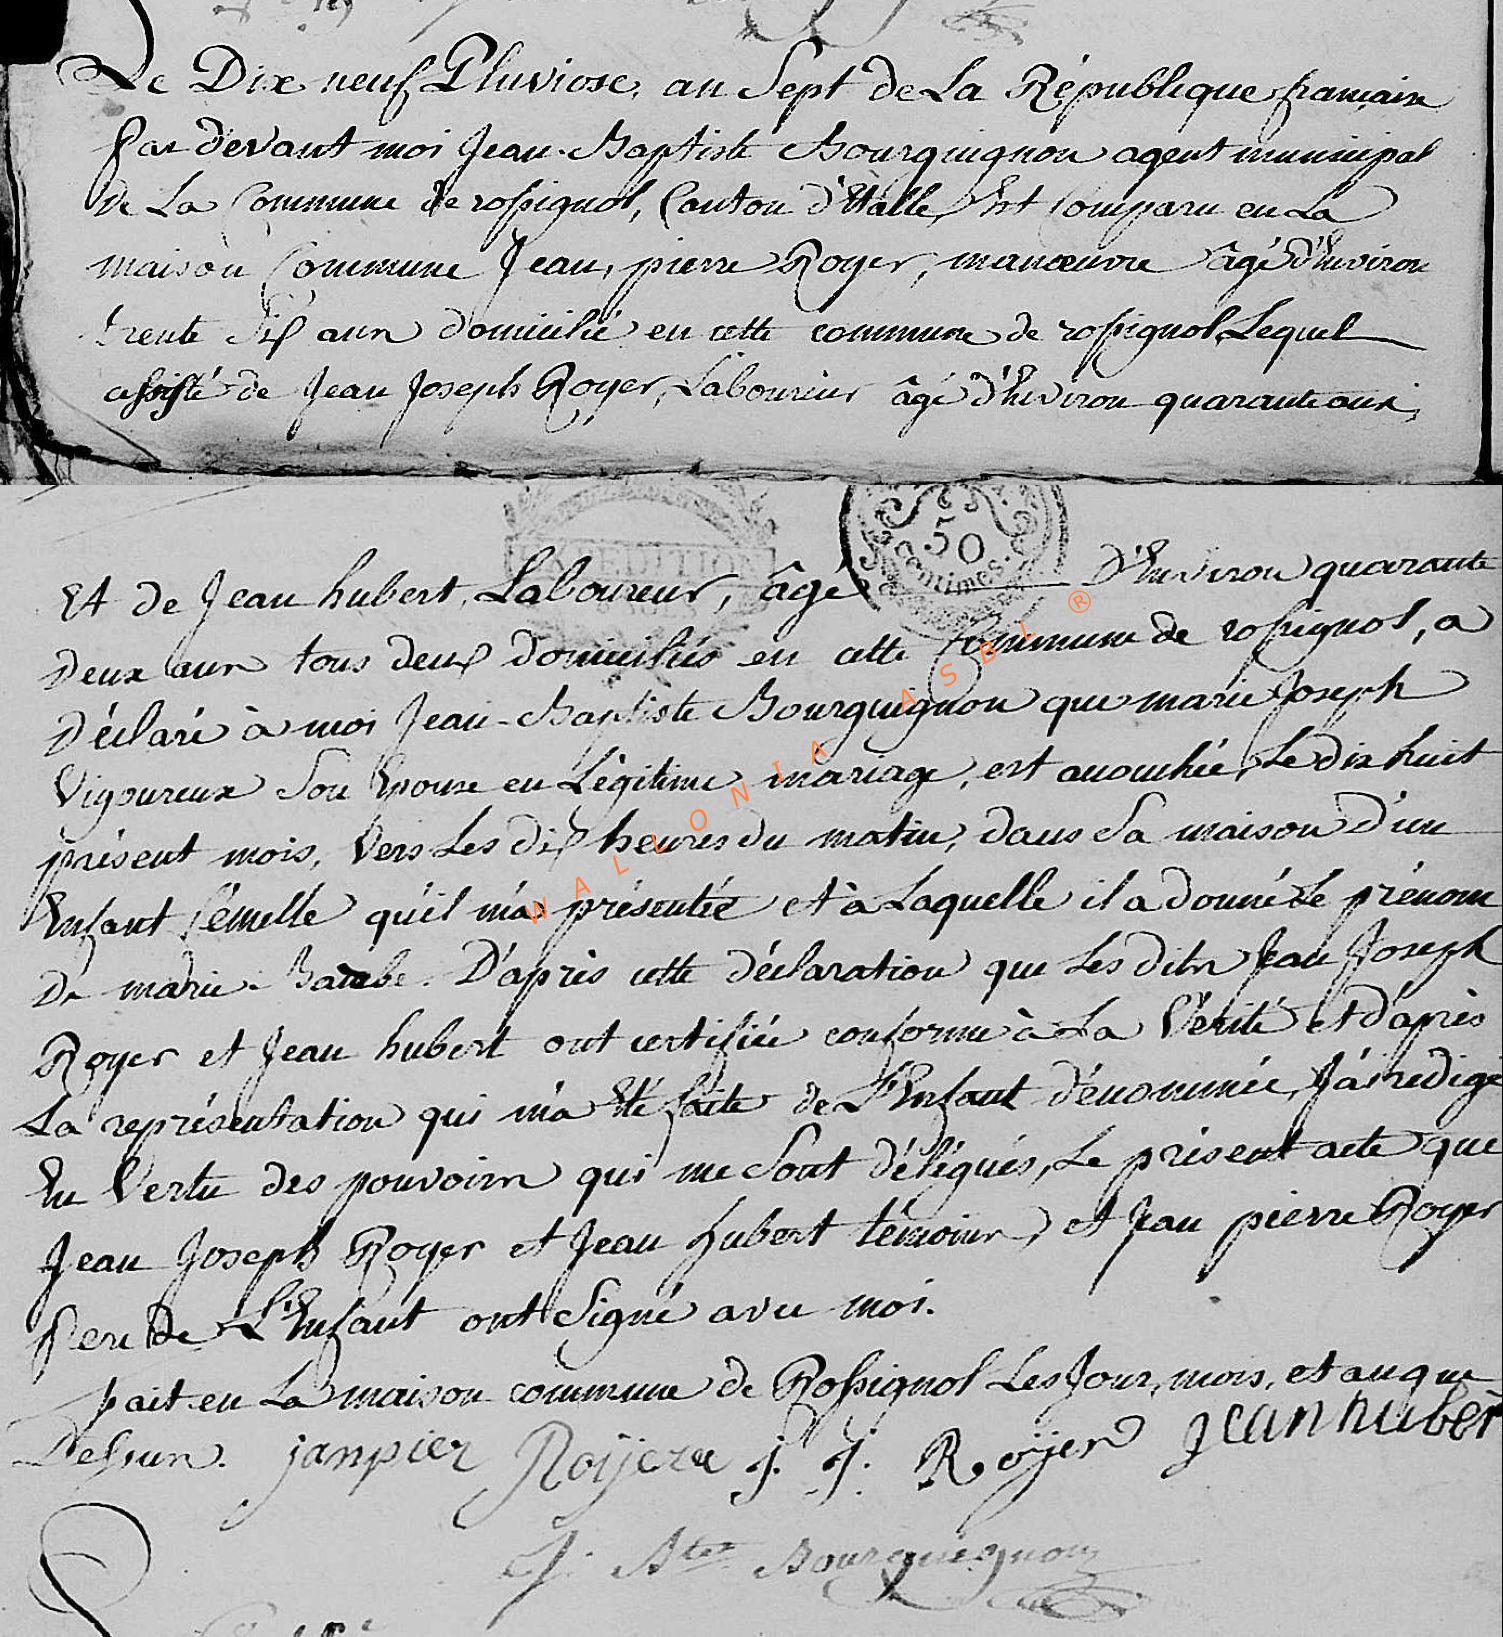 Le Dix neuf Pluviose, an Sept de La République française
Par devant moi Jean-Baptiste Bourguignon agent municipal
de La Commune de rossignol, Canton d'Etalle, Est Comparu en La
maison Commune Jean, pierre Royer, manoeuvre âgé d'Environ
trente Six ans domicilié en cette commune de rossignol, Lequel
assisté de Jean Joseph Royer, Laboureur âgé d'Environ quarante ans,
EXPEDITION
50
Centimes.
Et de Jean hubert, Laboureur, âgé d'Environ quarante
Deux ans tous deux domiciliés en cette Commune de rossignol, a
Déclaré à moi Jean-Baptiste Bourguignon que marie Joseph
Vigoureux Son Epouse en Légitime mariage, est accouchée, Le dix huit
présent mois, Vers Les dix heures du matin, dans Sa maison D'un
Enfant femelle qu'il m'a présentée et à Laquelle il a donné Le prénom
De marie-Barbe. D'après cette déclaration que Les dits Jean Joseph
Royer et Jean hubert ont certifiée conforme à La Vérité et D'après
La représentation qui m'a Eté faite de L'Enfant dénommée, J'ai rédigé
En Vertu des pouvoirs qui me Sont délégués, Le présent acte que
Jean Joseph Royer et Jean hubert témoins, et Jean pierre Royer
Pere De L'Enfant ont Signé avec moi.
fait en La maison commune de Rossignol Les Jour, mois, et an que
Dessus. janpier Roijere J. J. Roijer Jean huber
J. Bte Bourguignon
WALLONIA ASBL ®